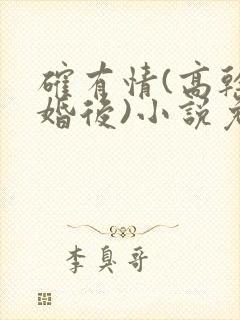 確有情(高幹
婚後)小說
李臭哥